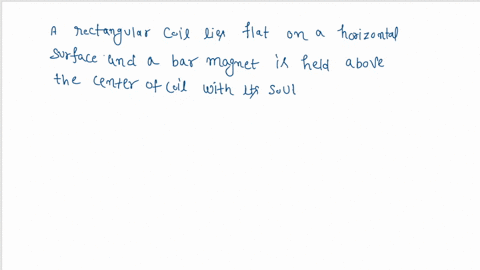 A rectangular coil lies flat on a horizontal
surface and a bar magnet is held above
the center of coil with its soul